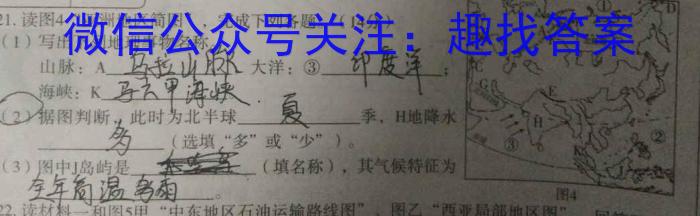 21.读图4 洲 简图 ,完成下列各题。(1
(1)写出 地 名称
微信公众号关注：趣找答案
山脉：A 乌拉山脉 大洋：③ 印度洋 ；
海峡：K 马六甲海峡 .
(2)据图判断，此时为北半球 夏 季，H地降水
多 （选填“多”或“少”）。
(3)图中J岛屿是 （填名称），其气候特征为
全年高温多雨 。
图4
22.读材料一和图5甲“中东地区石油运输路线图”、图乙“西亚局部地区图”